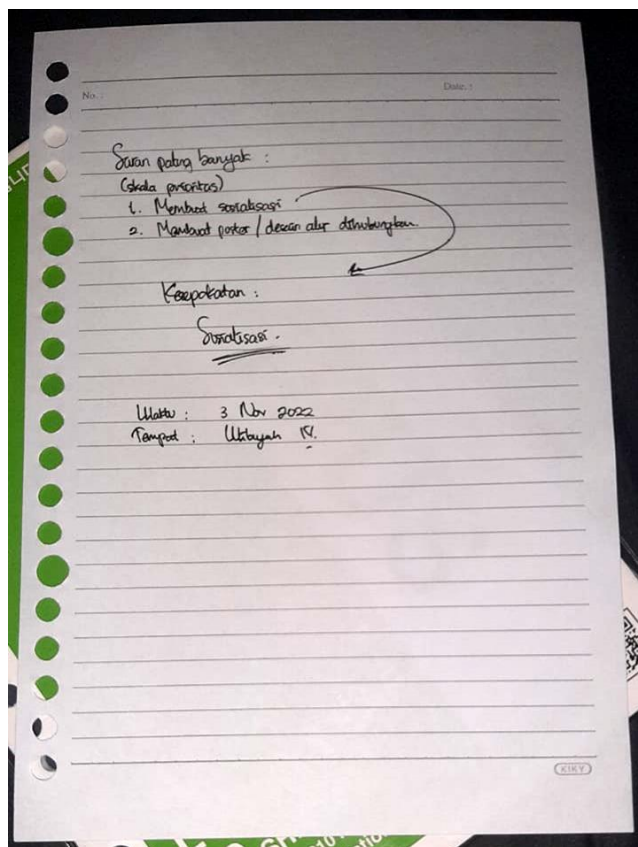 No. :
Date. :
Saran paling banyak :
(skala prioritas)
1. Membuat sosialisasi
2. Membuat poster / desain alur dihubungkan
Kesepakatan :
Sosialisasi.
Waktu : 3 Nov 2022
Tempat : Wilayah IV.
KIKY